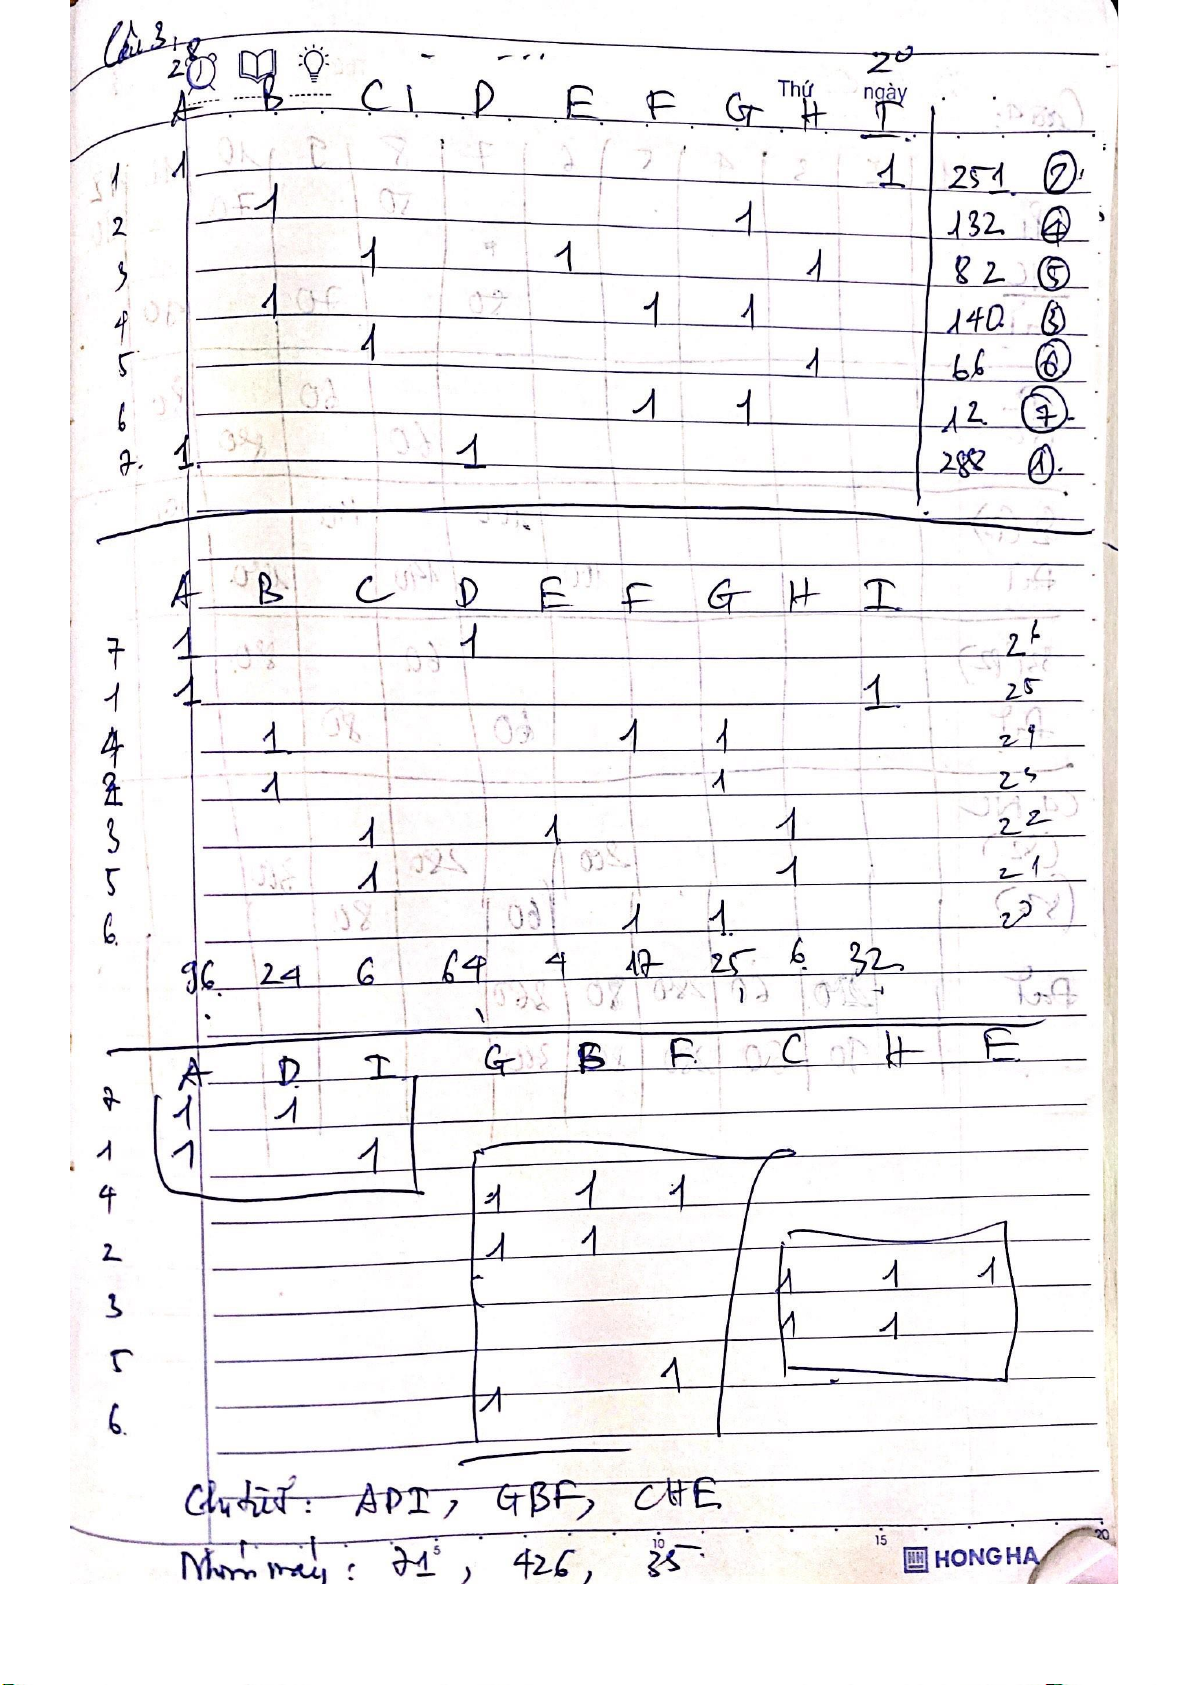 Câu 3:
2⁸ 2⁰
Thứ ngày
A B C D E F G H I
1 1 1 251 ②
2 1 1 132 ④
3 1 1 1 82 ⑤
4 1 1 1 140 ③
5 1 1 66 ⑥
6 1 1 12 ⑦
7. 1 1 288 ①
A B C D E F G H I
7 1 1 2⁶
1 1 1 2⁵
4 1 1 1 2⁴
2 1 1 2³
3 1 1 1 2²
5 1 1 2¹
6. 1 1 2⁰
96 24 6 64 4 17 25 6 32
A D I G B F C H E
7 1 1
1 1 1
4 1 1 1
2 1 1
3 1 1 1
5 1 1
6. 1 1
Chi tiết: ADI, GBF, CHE
Nhóm máy: 71, 426, 35
5 10 15 20
HH HONG HA